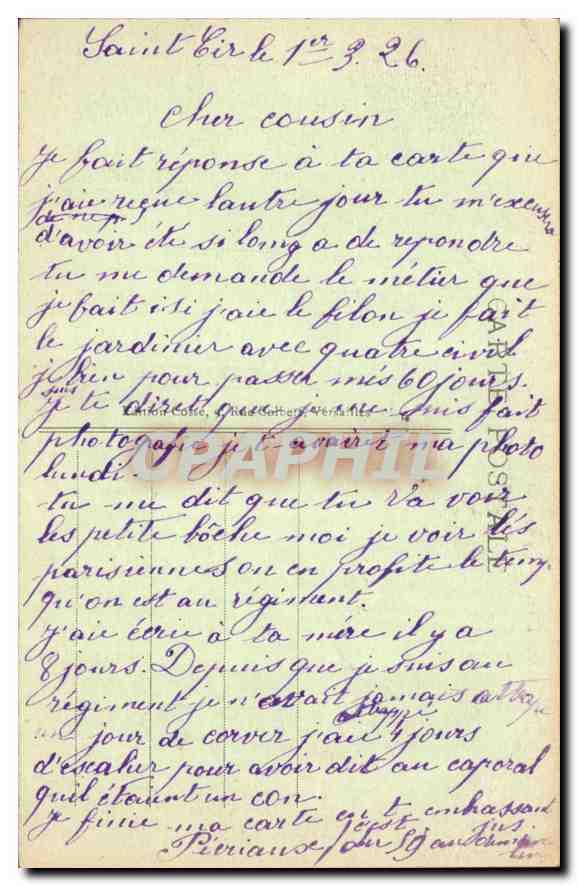 Saint Cir le 1er 3. 26.
Cher cousin
Je fait réponse à ta carte que
j'aie reçue lautre jour tu m'excusera
d'avoir été si long a de repondre
tu me demande le métier que
je fait isi j'aie le filon je fait
le jardinier avec quatre civil
je bien pour passer mes 60 jours.
suis
je te direz que je me suis fait
Edition Cosse, 4, Rue Colbert, Versailles
CARTE POSTALE
CPAPHIL
photografié je t'enverrez ma photo
lundi.
tu me dit que tu va voir
les petite bôche moi je voir les
parisiennes on en profite le temp
qu'on est au régiment.
J'aie écrie à ta mère il y a
8 jours. Depuis que je suis au
régiment je n'avait jamais attrapé
un jour de corver j'aie 4 jours
d'escalier pour avoir dit au caporal
quil étaint un con.
Je finie ma carte en t embrassant
Periaux c'est jus.